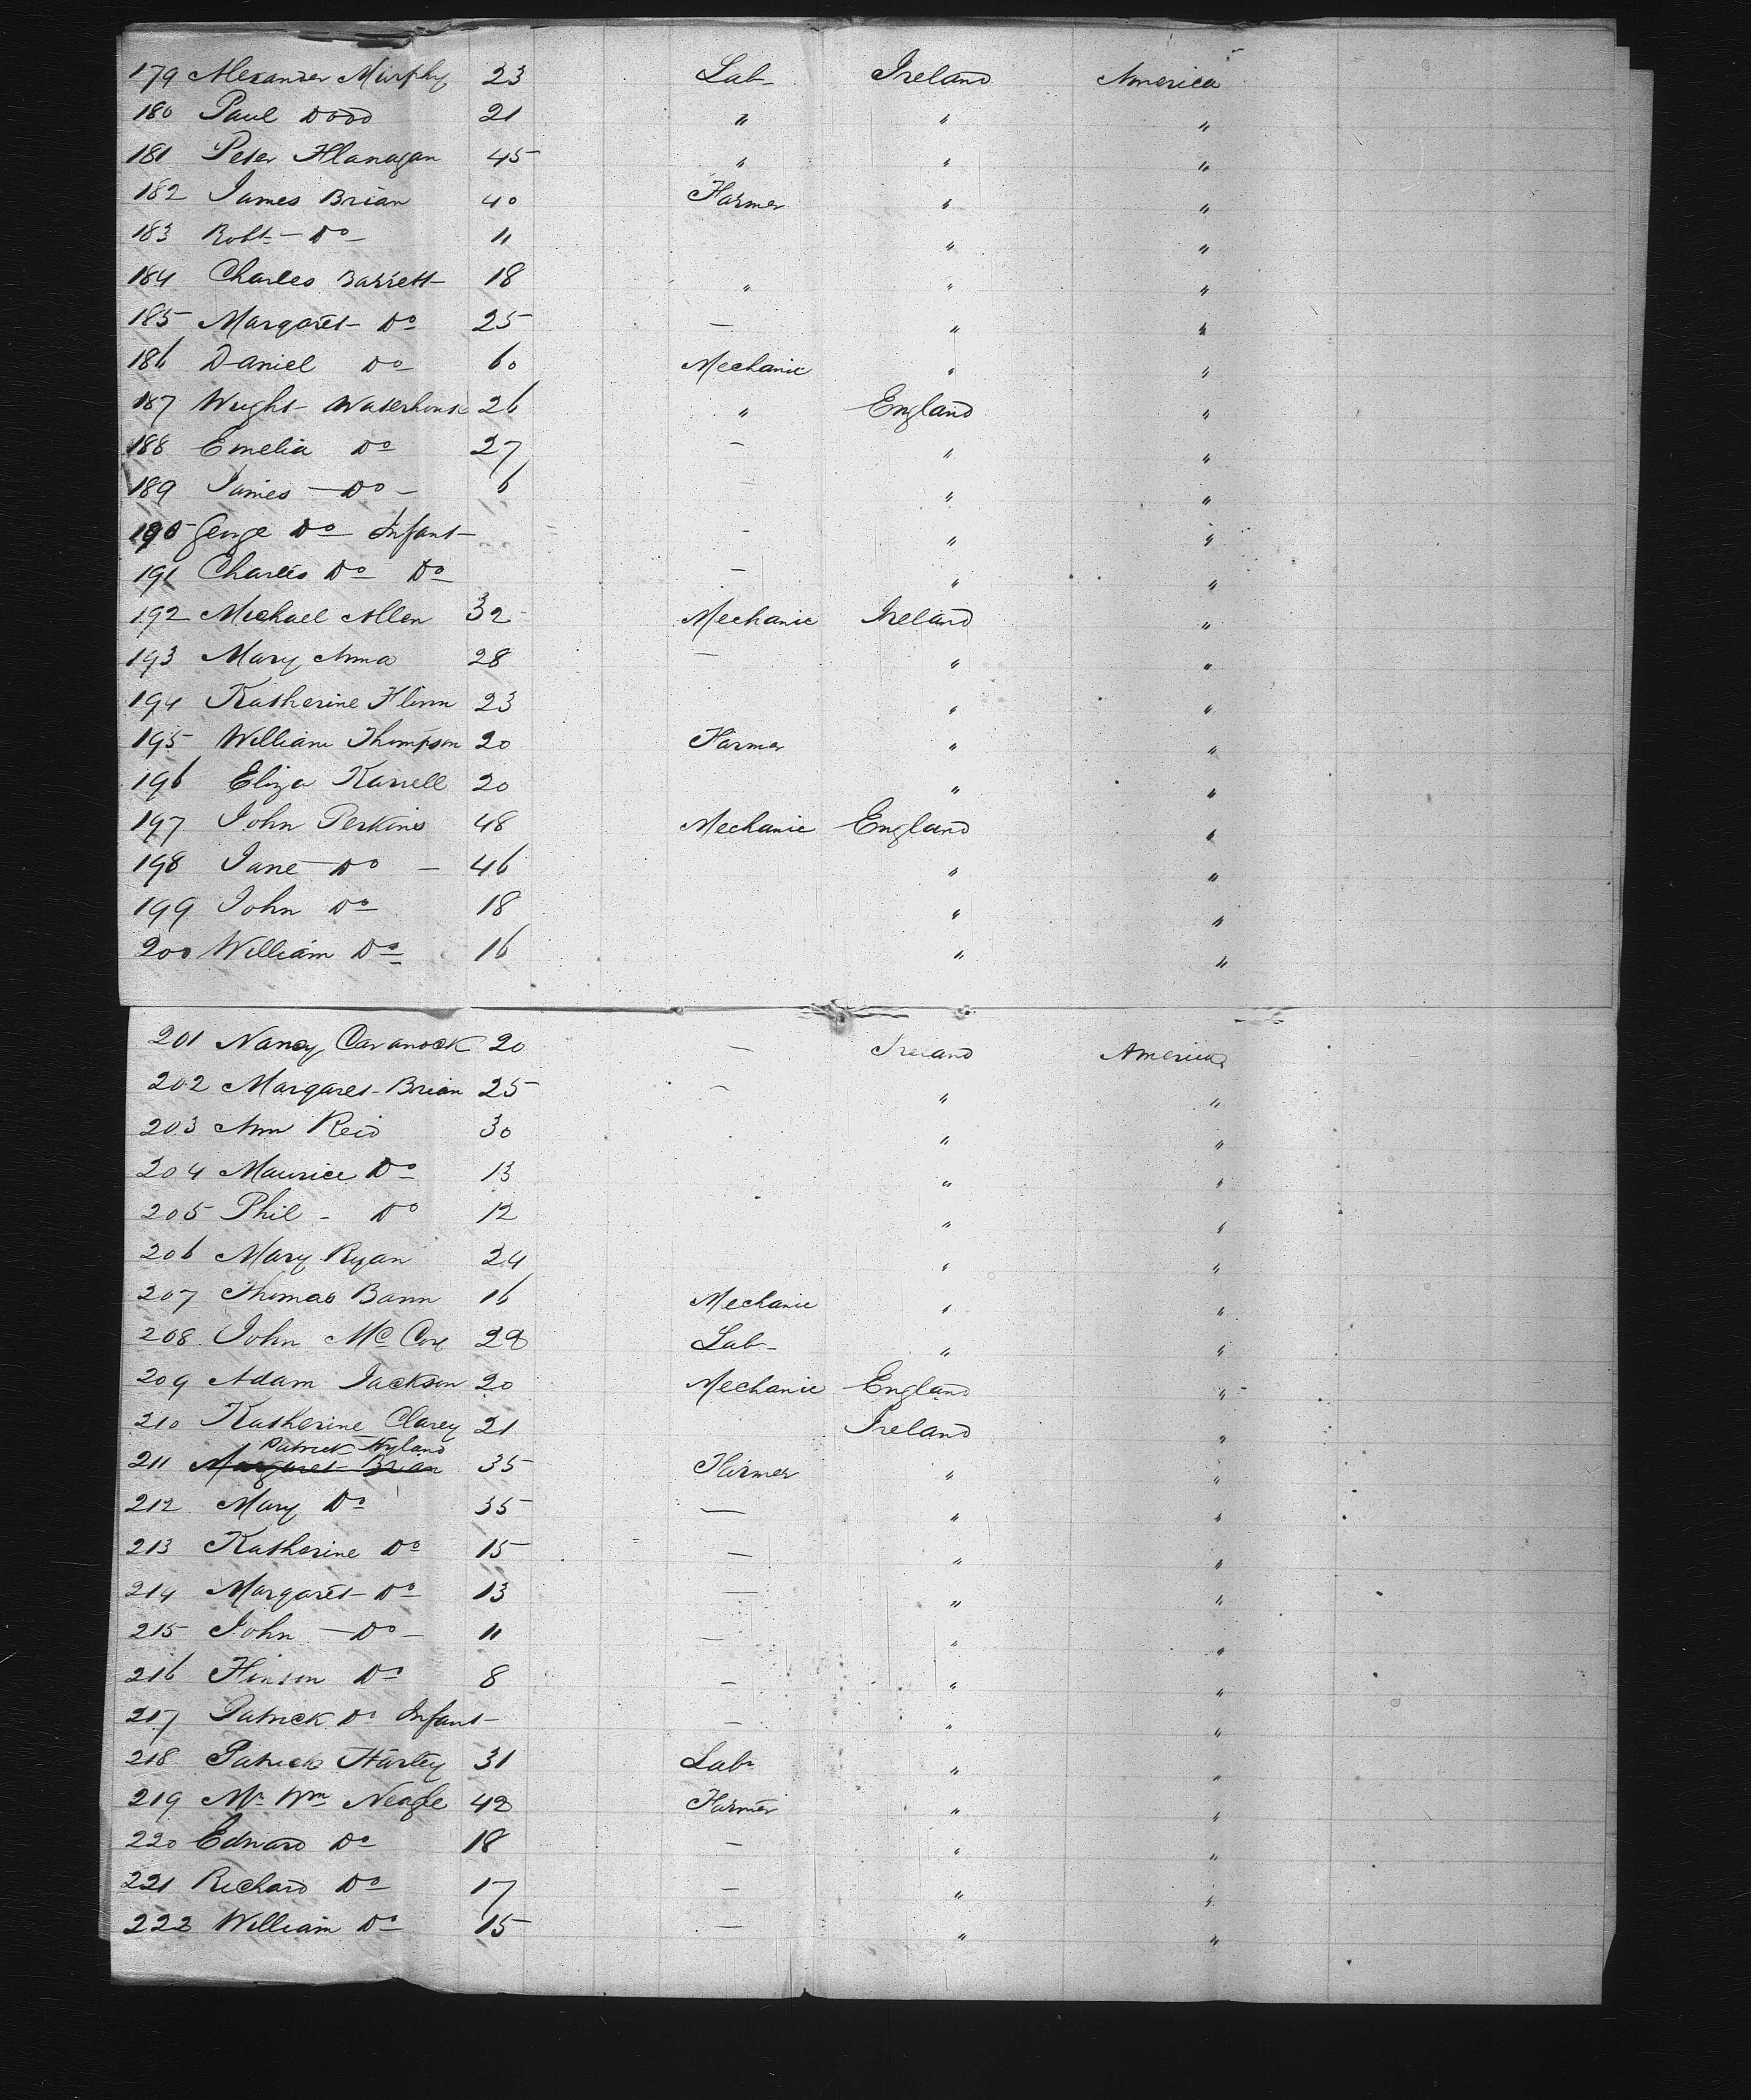 179 Alexander Murphy 23 Lab- Ireland America
180 Paul Dodd 21 " " "
181 Peter Flanagan 45 " " "
182 James Brian 40 Farmer " "
183 Robt - Do - 11 " "
184 Charles Barrett 18 " " "
185 Margaret - Do 25 — " "
186 Daniel Do 60 Mechanic " "
187 Wright - Waterhouse 26 " England "
188 Emelia Do 27 - " "
189 James - Do - 6 - " "
190 George Do Infant - - " "
191 Charles Do Do - " "
192 Michael Allen 32 Mechanic Ireland "
193 Mary Anna 28 — " "
194 Katherine Flinn 23 " "
195 William Thompson 20 Farmer " "
196 Eliza Karrell 20 " "
197 John Perkins 48 Mechanic England "
198 Jane - Do - 46 " "
199 John Do 18 " "
200 William Do 16 " "
201 Nancy Cavanock 20 — Ireland America
202 Margaret - Brian 25 - " "
203 Ann Reid 30 " "
204 Maurice Do 13 " "
205 Phil - Do 12 " "
206 Mary Ryan 24 " "
207 Thomas Bann 16 Mechanic " "
208 John Mc 28 Lab- " "
209 Adam Jackson 20 Mechanic England "
210 Katherine Clarey 21 Ireland "
Patrick Hyland
211 Margaret Brian 35 Farmer " "
212 Mary Do 35 — " "
213 Katherine Do 15 — " "
214 Margaret - Do 13 — " "
215 John - Do - 11 — " "
216 Do 8 - " "
217 Patrick Do Infant - - " "
218 Patrick Harley 31 Lab " "
219 Mr Wm Neagle 42 Farmer " "
220 Edward Do 18 - " "
221 Richard Do 17 - " "
222 William Do 15 — " "